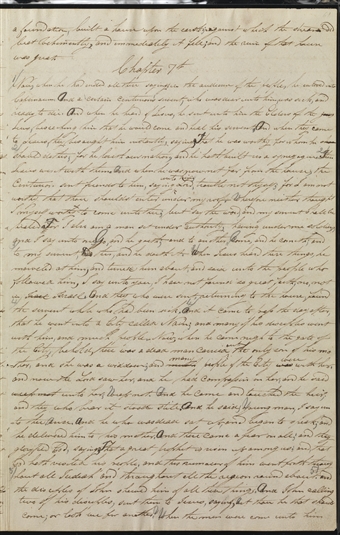 a foundation, built a house upon the earth, against which the stream did
beat vehemently, and immediately it fell, and the ruin of that house
was great
Chapter 7th
Now when he had ended all these sayings in the audience of the people, he entered into
Capernaum And a certain Centurions servant, who was dear unto him, was sick, and
ready to die And when he heard of Jesus, he sent unto him the Elders of the
Jews, beseeching him that he would come and heal his servant And when they came
to Jesus, they besought him instantly, saying, That he was worthy for whom he
should do this, for he loveth our nation, and he hath built us a synagogue
Jesus went with them And when he was now not far from the house, the
Centurion sent friends to him, saying unto him Lord, trouble not thyself, for I am not
worthy that thou shouldest enter under my roof Wherefore neither thought
I myself worthy to come unto thee, but say the word, and my servant shall be
healed For I also am a man set under authority, having under me soldiers,
and I say unto one, Go, and he goeth, and to another, Come, and he cometh, and
to my servant, Do this, and he doeth it When Jesus heard these things, he
marveled at him, and turned him about and said unto the people who
followed him, I say unto you, I have not found so great faith, no, not
in Israel And they who were sent, returning to the house, found
the servant whole who had been sick And it came to pass the day after,
that he went into a City called Nain, and many of his disciples went
with him, and much people Now, when he came nigh to the gate of
the City, behold, there was a dead man carried out, the only son of his mo
ther, and she was a widow, and many people of the City were with her
and now the Lord saw her, and he had compassion on her, and he said
unto her, Weep not And he came and touched the bier,
and they who bear it stood still And he said, Young man, I say unto
thee Arise And he who was dead sat up, and began to speak, and
he delivered him to his mother And there came a fear on all, and they
glorified God, saying That a great prophet is risen up among us, and that
God hath visited his people, and this rumor of him went forth through
out all Judeah and throughout all the region round about And
the disciples of John shewed him of all these things And John calling
two of his disciples, sent them to Jesus, saying, Art thou he that should
come, or look we for another When the men were come unto him